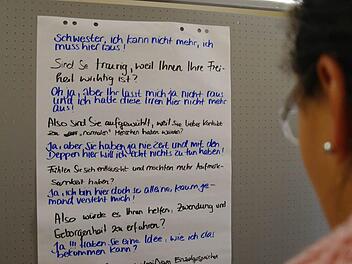 Schwester, ich kann nicht mehr, ich
muss hier raus!
Sind Sie traurig, weil Ihnen Ihre Frei-
heit wichtig ist?
Oh ja, aber Ihr lasst mich ja nicht raus
und ich halte diese Irren hier nicht mehr
aus!
Also sind Sie aufgewühlt, weil Sie lieber Kontakte
zu "normalen" Menschen haben würden?
Ja, aber Sie haben ja nie Zeit und mit den
Deppen hier will ich echt nichts zu tun haben!
Fühlen Sie sich enttäuscht und möchten mehr Aufmerk-
samkeit haben?
Ja, ich bin hier doch so alleine, kaum je-
mand versteht mich!
Also würde es Ihnen helfen, Zuwendung und
Geborgenheit zu erfahren?
Ja!!! Haben Sie eine Idee, wie ich das
bekommen kann?
Einzelgespräche